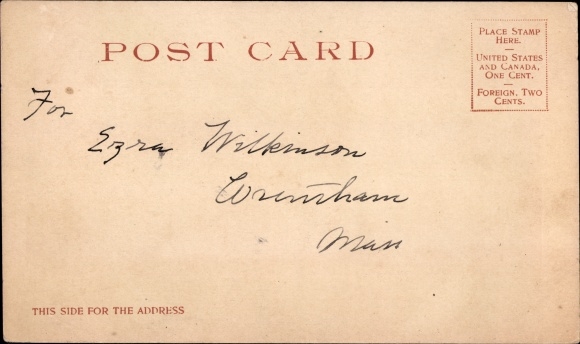 POST CARD
PLACE STAMP
HERE.
UNITED STATES
AND CANADA,
ONE CENT.
FOREIGN, TWO
CENTS.
For
Ezra Wilkinson
Wrentham
Mass
THIS SIDE FOR THE ADDRESS